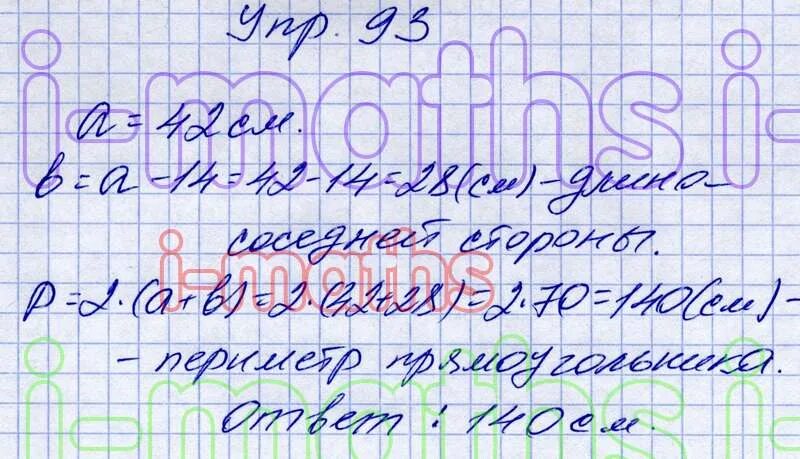 Упр. 93
i-maths i
a = 42 см.
b = a - 14 = 42 - 14 = 28 (см) - длина
соседней стороны.
i-maths
P = 2·(a+b) = 2·(42+28) = 2·70 = 140 (см) -
- периметр прямоугольника.
i-maths i
Ответ: 140 см.